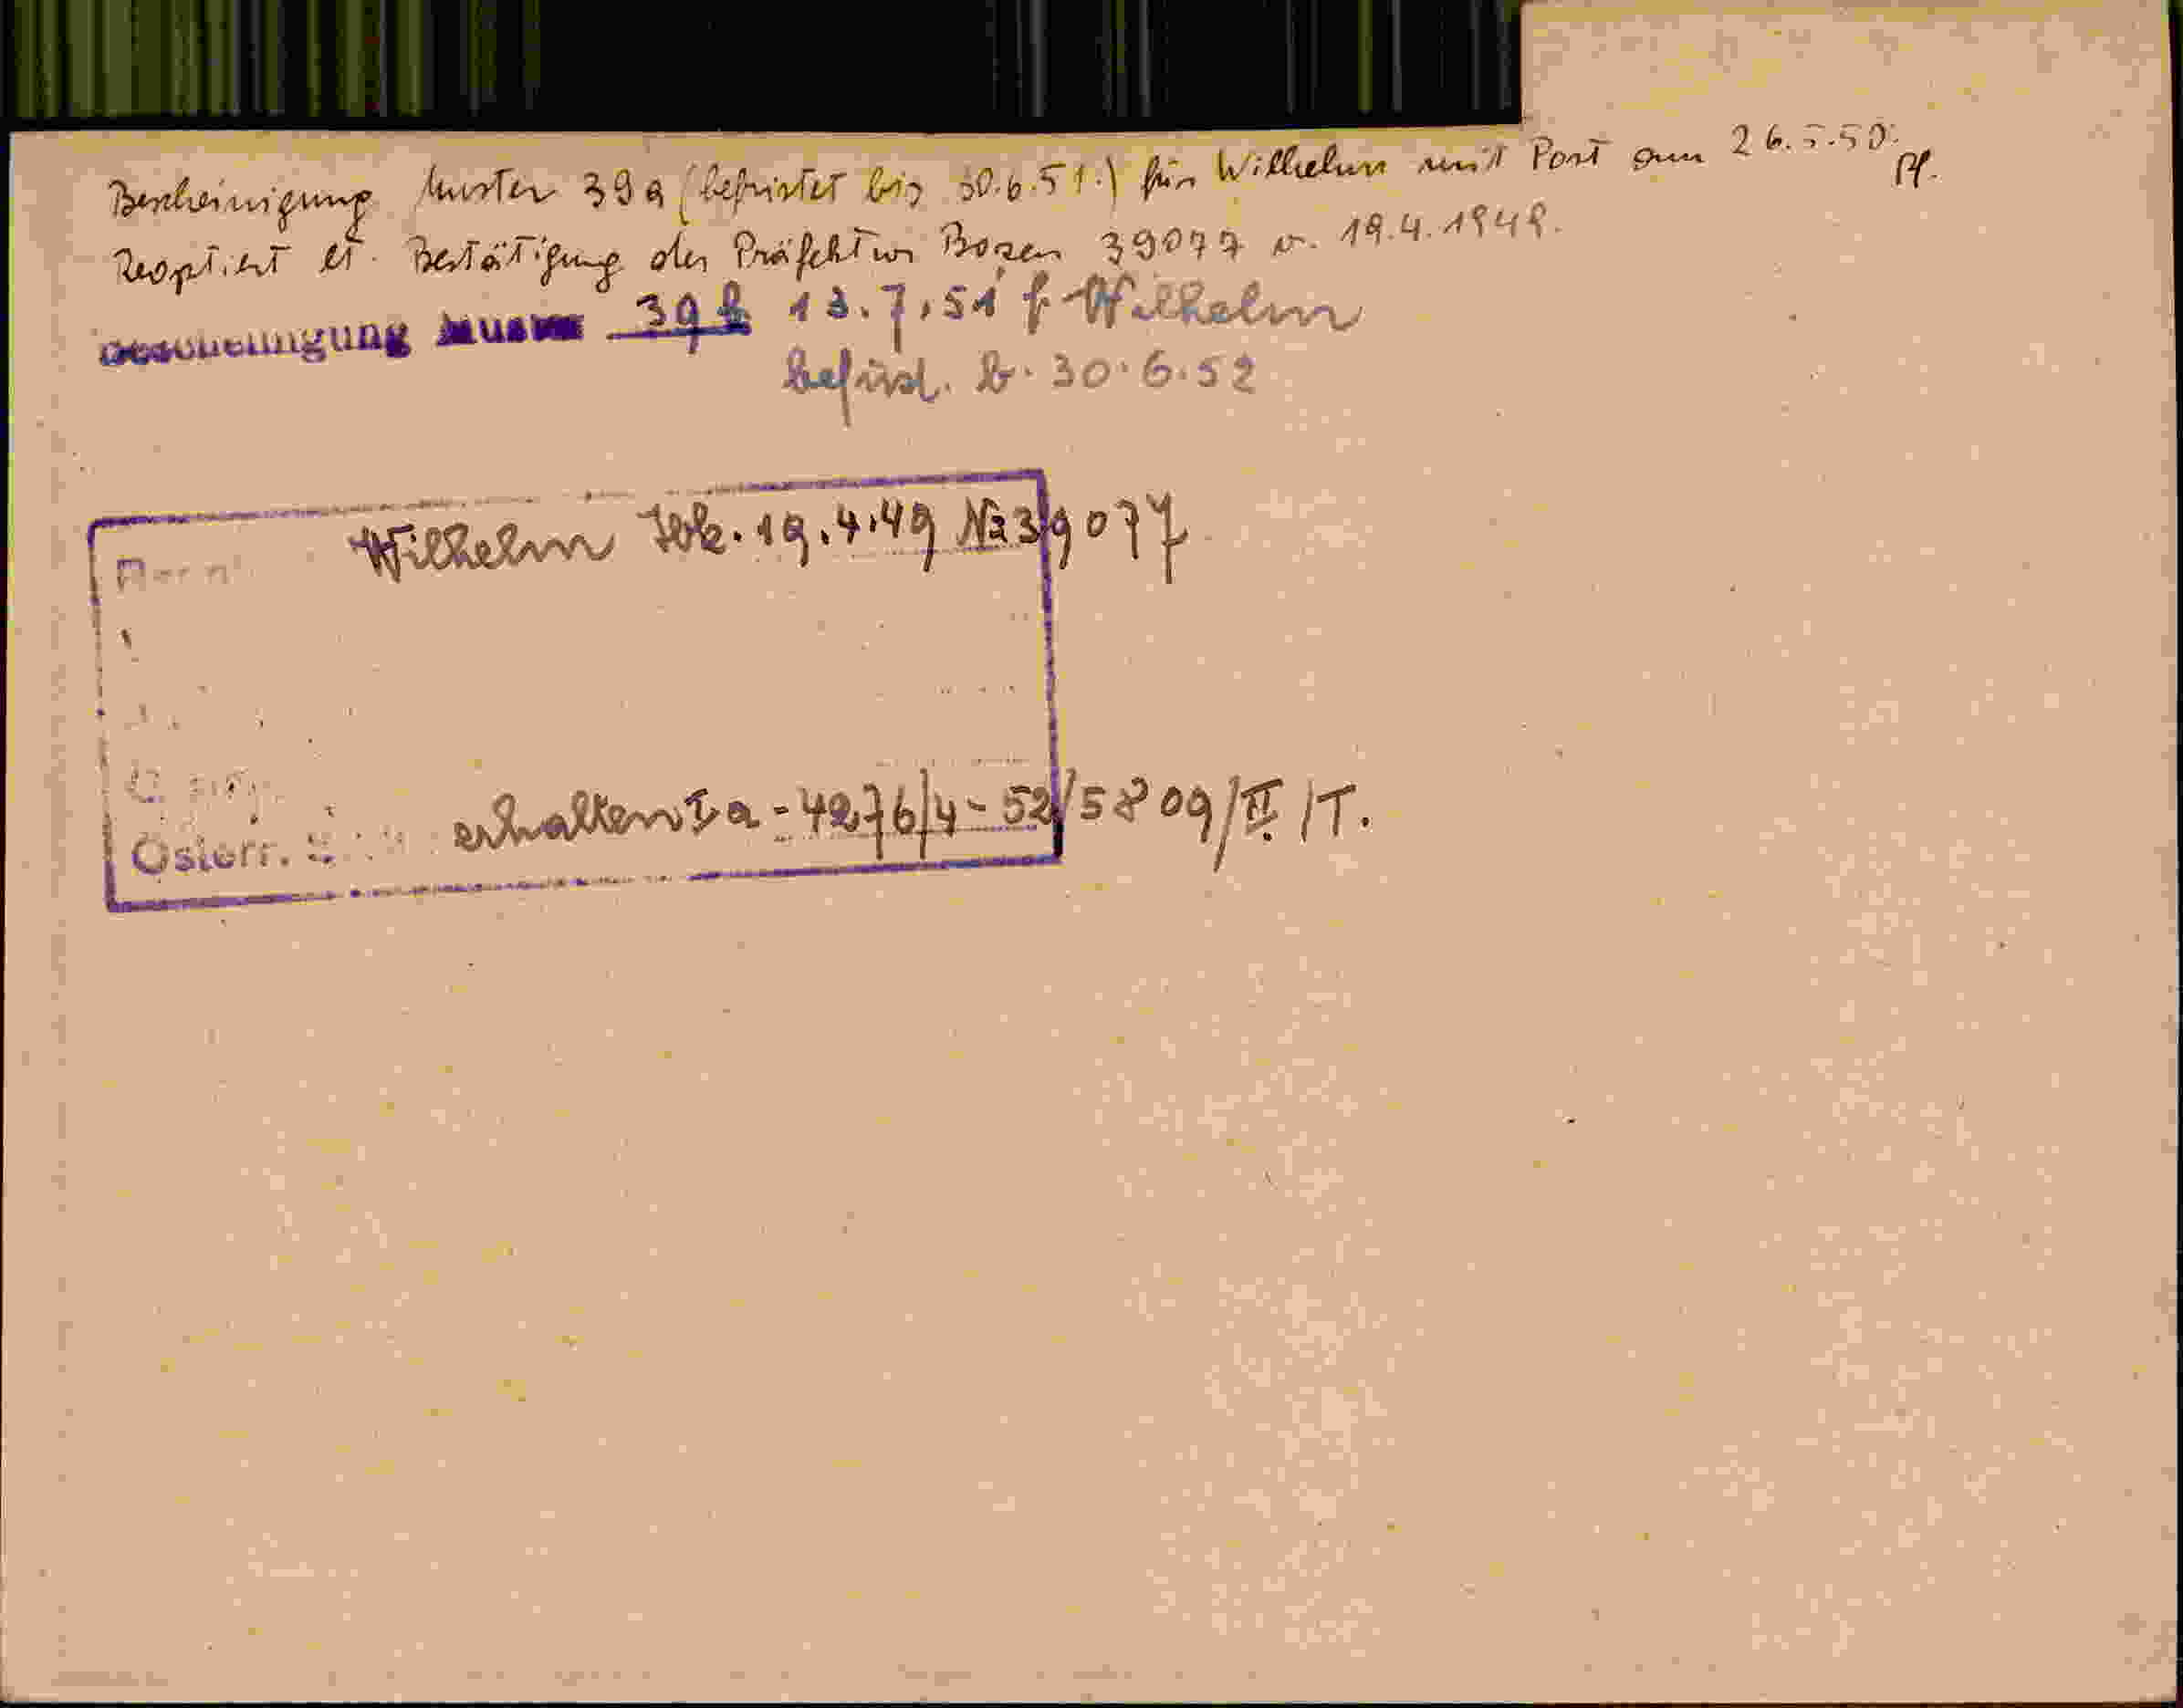 Bescheinigung Muster 39a (befristet bis 30.6.51.) für Wilhelm mit Post am 26.5.50.
Pf.
Reoptiert lt. Bestätigung der Präfektur Bozen 39077 v. 19.4.1949.
Bescheinigung Muster 39 b 13.7.51 f. Wilhelm
befrist. b. 30.6.52
Wilhelm 19.4.49 Nr 39077
erhalten Ia-4276/4-52/5809/II./T.
Österr.